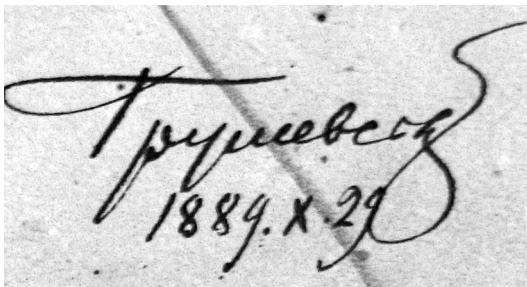 Грушевскій
1889.X.29